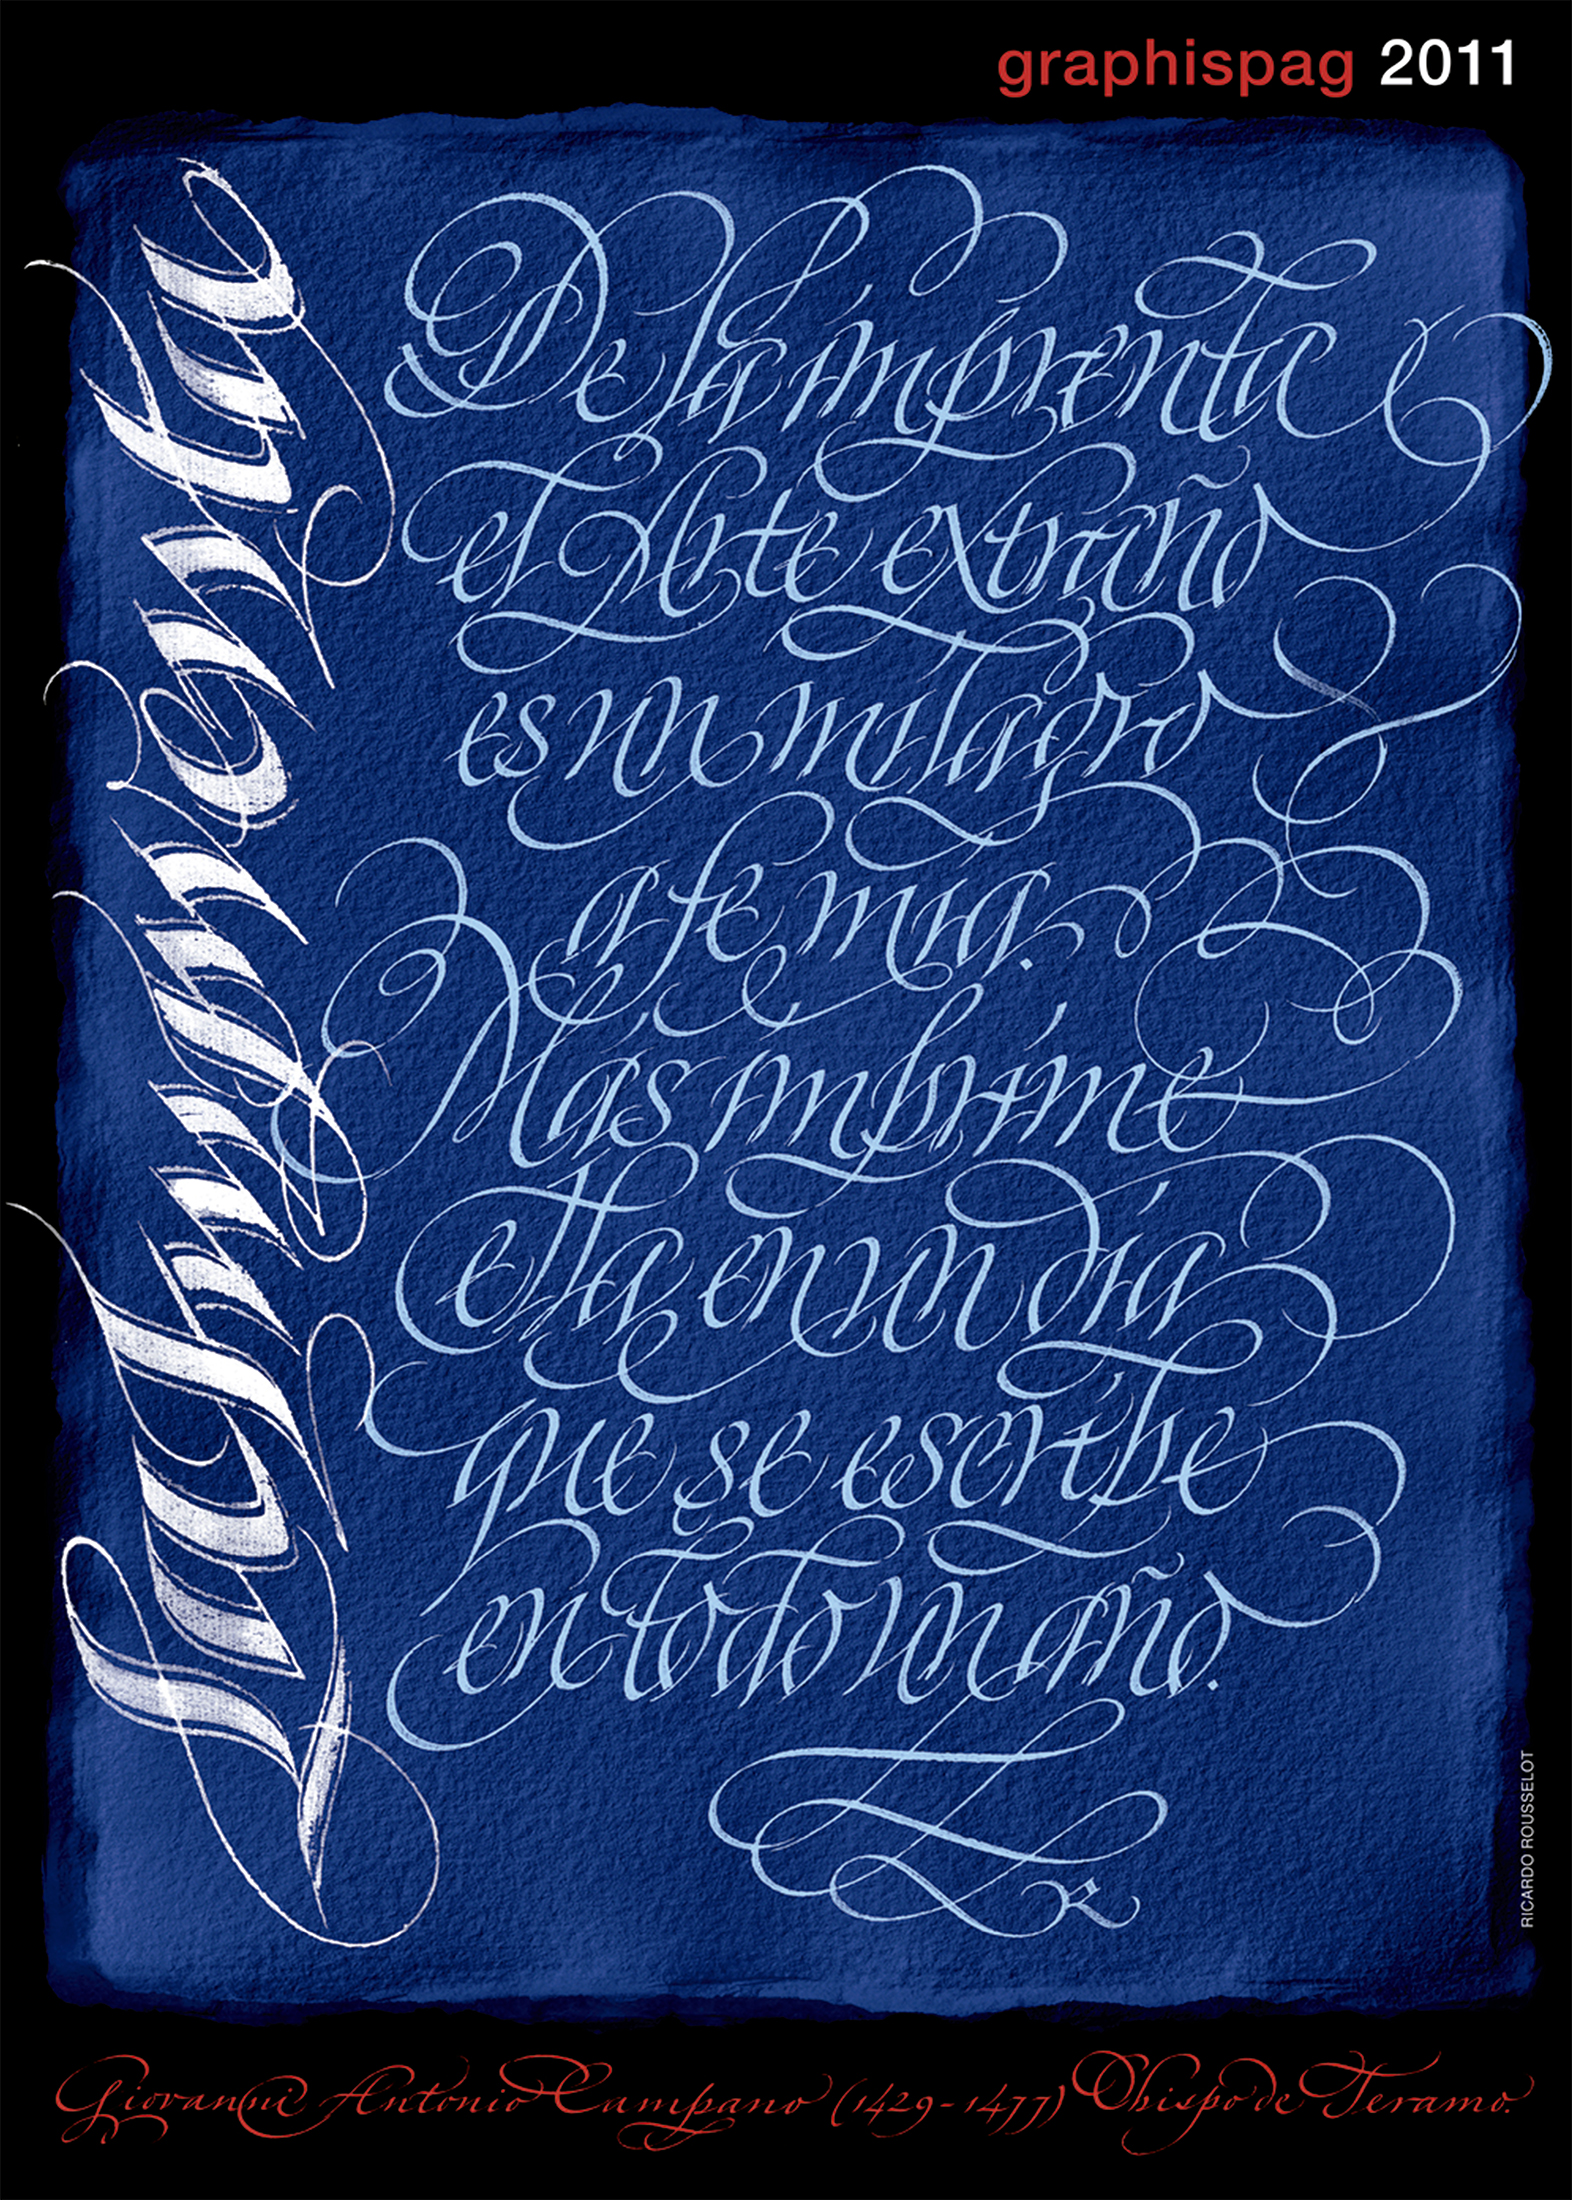 graphispag 2011
La Imprenta
De la imprenta
el Arte extraño
es un milagro
a fe mía.
Más imprime
ella en un día
que se escribe
en todo un año.
RICARDO ROUSSELOT
Giovanni Antonio Campano (1429-1477) Obispo de Teramo.